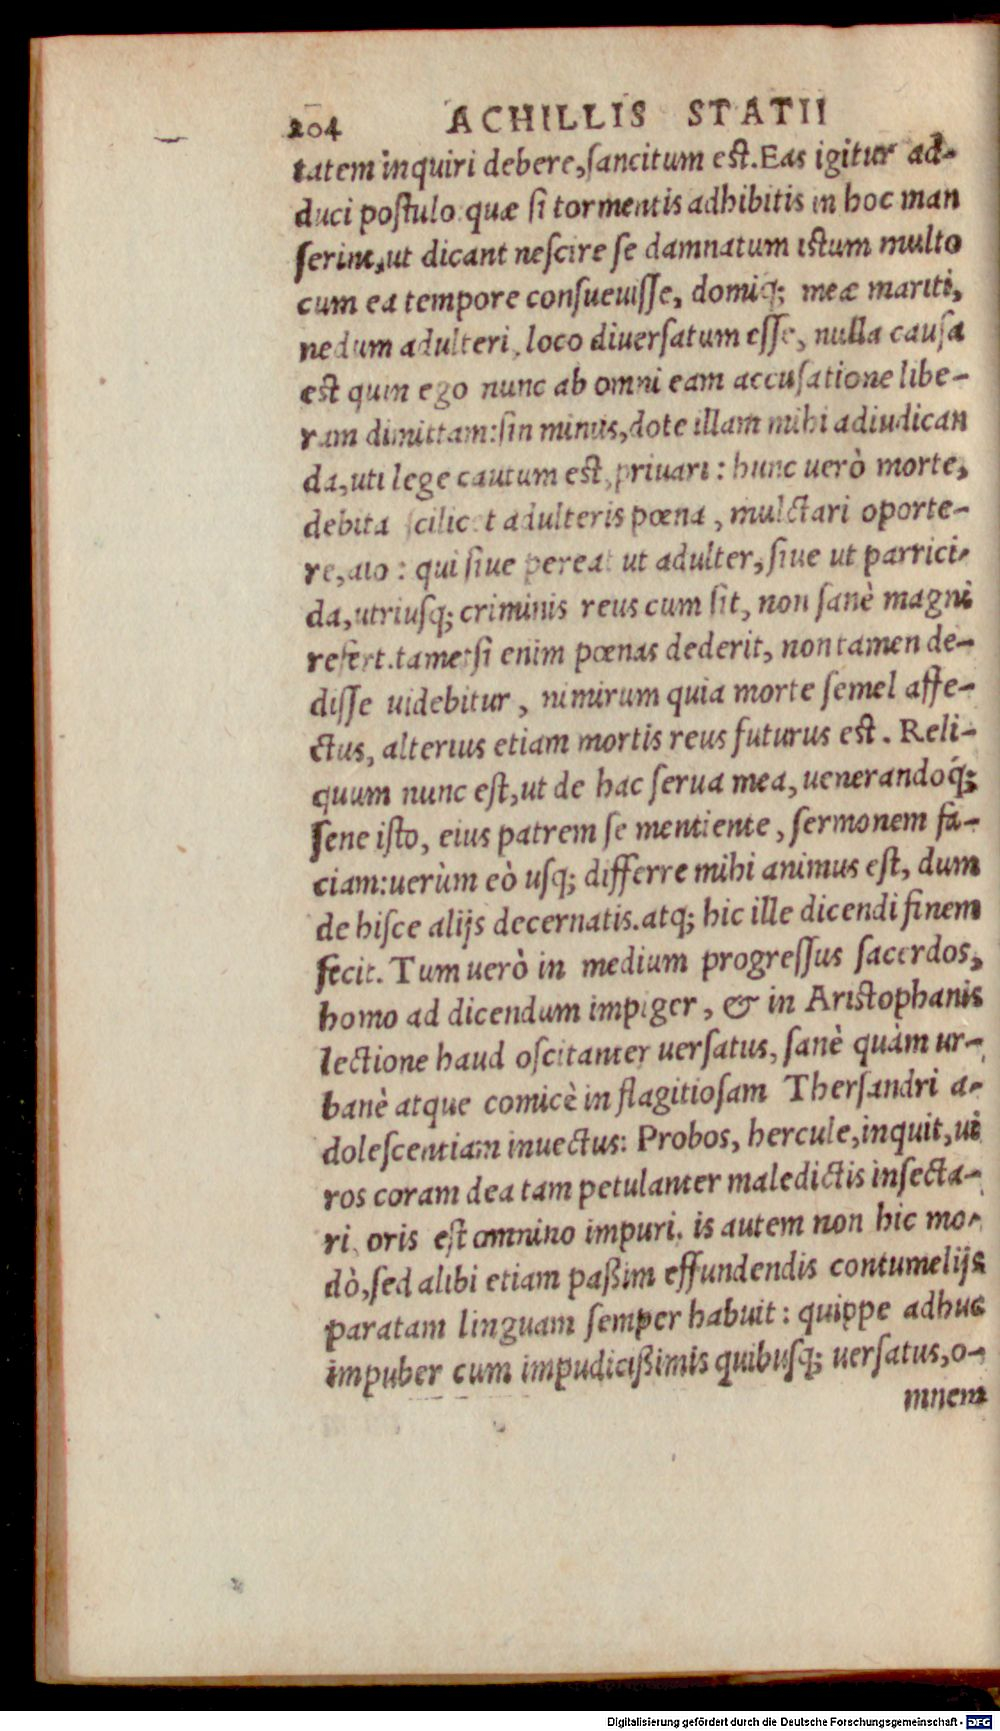 204 ACHILLIS STATII
tatem inquiri debere, ſancitum eſt. Eas igitur ad-
duci poſtulo quæ ſi tormentis adhibitis in hoc man
ſerint, ut dicant neſcire ſe damnatum iſtum multo
cum ea tempore conſueuiſſe, domiq; meæ mariti,
nedum adulteri, loco diuerſatum eſſe, nulla cauſa
eſt quin ego nunc ab omni eam accuſatione libe-
ram dimittam: ſin minus, dote illam mihi adiudican
da, uti lege cautum eſt, priuari: hunc uerò morte,
debita ſcilicet adulteris pœna, mulctari oporte-
re, aio: qui ſiue pereat ut adulter, ſiue ut parrici-
da, utriuſq; criminis reus cum ſit, non ſanè magni
refert. tametſi enim pœnas dederit, non tamen de-
diſſe uidebitur, nimirum quia morte ſemel affe-
ctus, alterius etiam mortis reus futurus eſt. Reli-
quum nunc eſt, ut de hac ſerua mea, uenerandoq́;
ſene iſto, eius patrem ſe mentiente, ſermonem fa-
ciam: uerùm eò uſq; differre mihi animus eſt, dum
de hiſce alijs decernatis. atq; hic ille dicendi finem
fecit. Tum uerò in medium progreſſus ſacerdos,
homo ad dicendum impiger, & in Ariſtophanis
lectione haud oſcitanter uerſatus, ſanè quàm ur-
banè atque comicè in flagitioſam Therſandri a-
doleſcentiam inuectus: Probos, hercule, inquit, ui
ros coram dea tam petulanter maledictis inſecta-
ri, oris eſt omnino impuri. is autem non hic mo-
dò, ſed alibi etiam paßim effundendis contumelijs
paratam linguam ſemper habuit: quippe adhuc
impuber cum impudicißimis quibuſq; uerſatus, o-
mnem
Digitalisierung gefördert durch die Deutsche Forschungsgemeinschaft - DFG